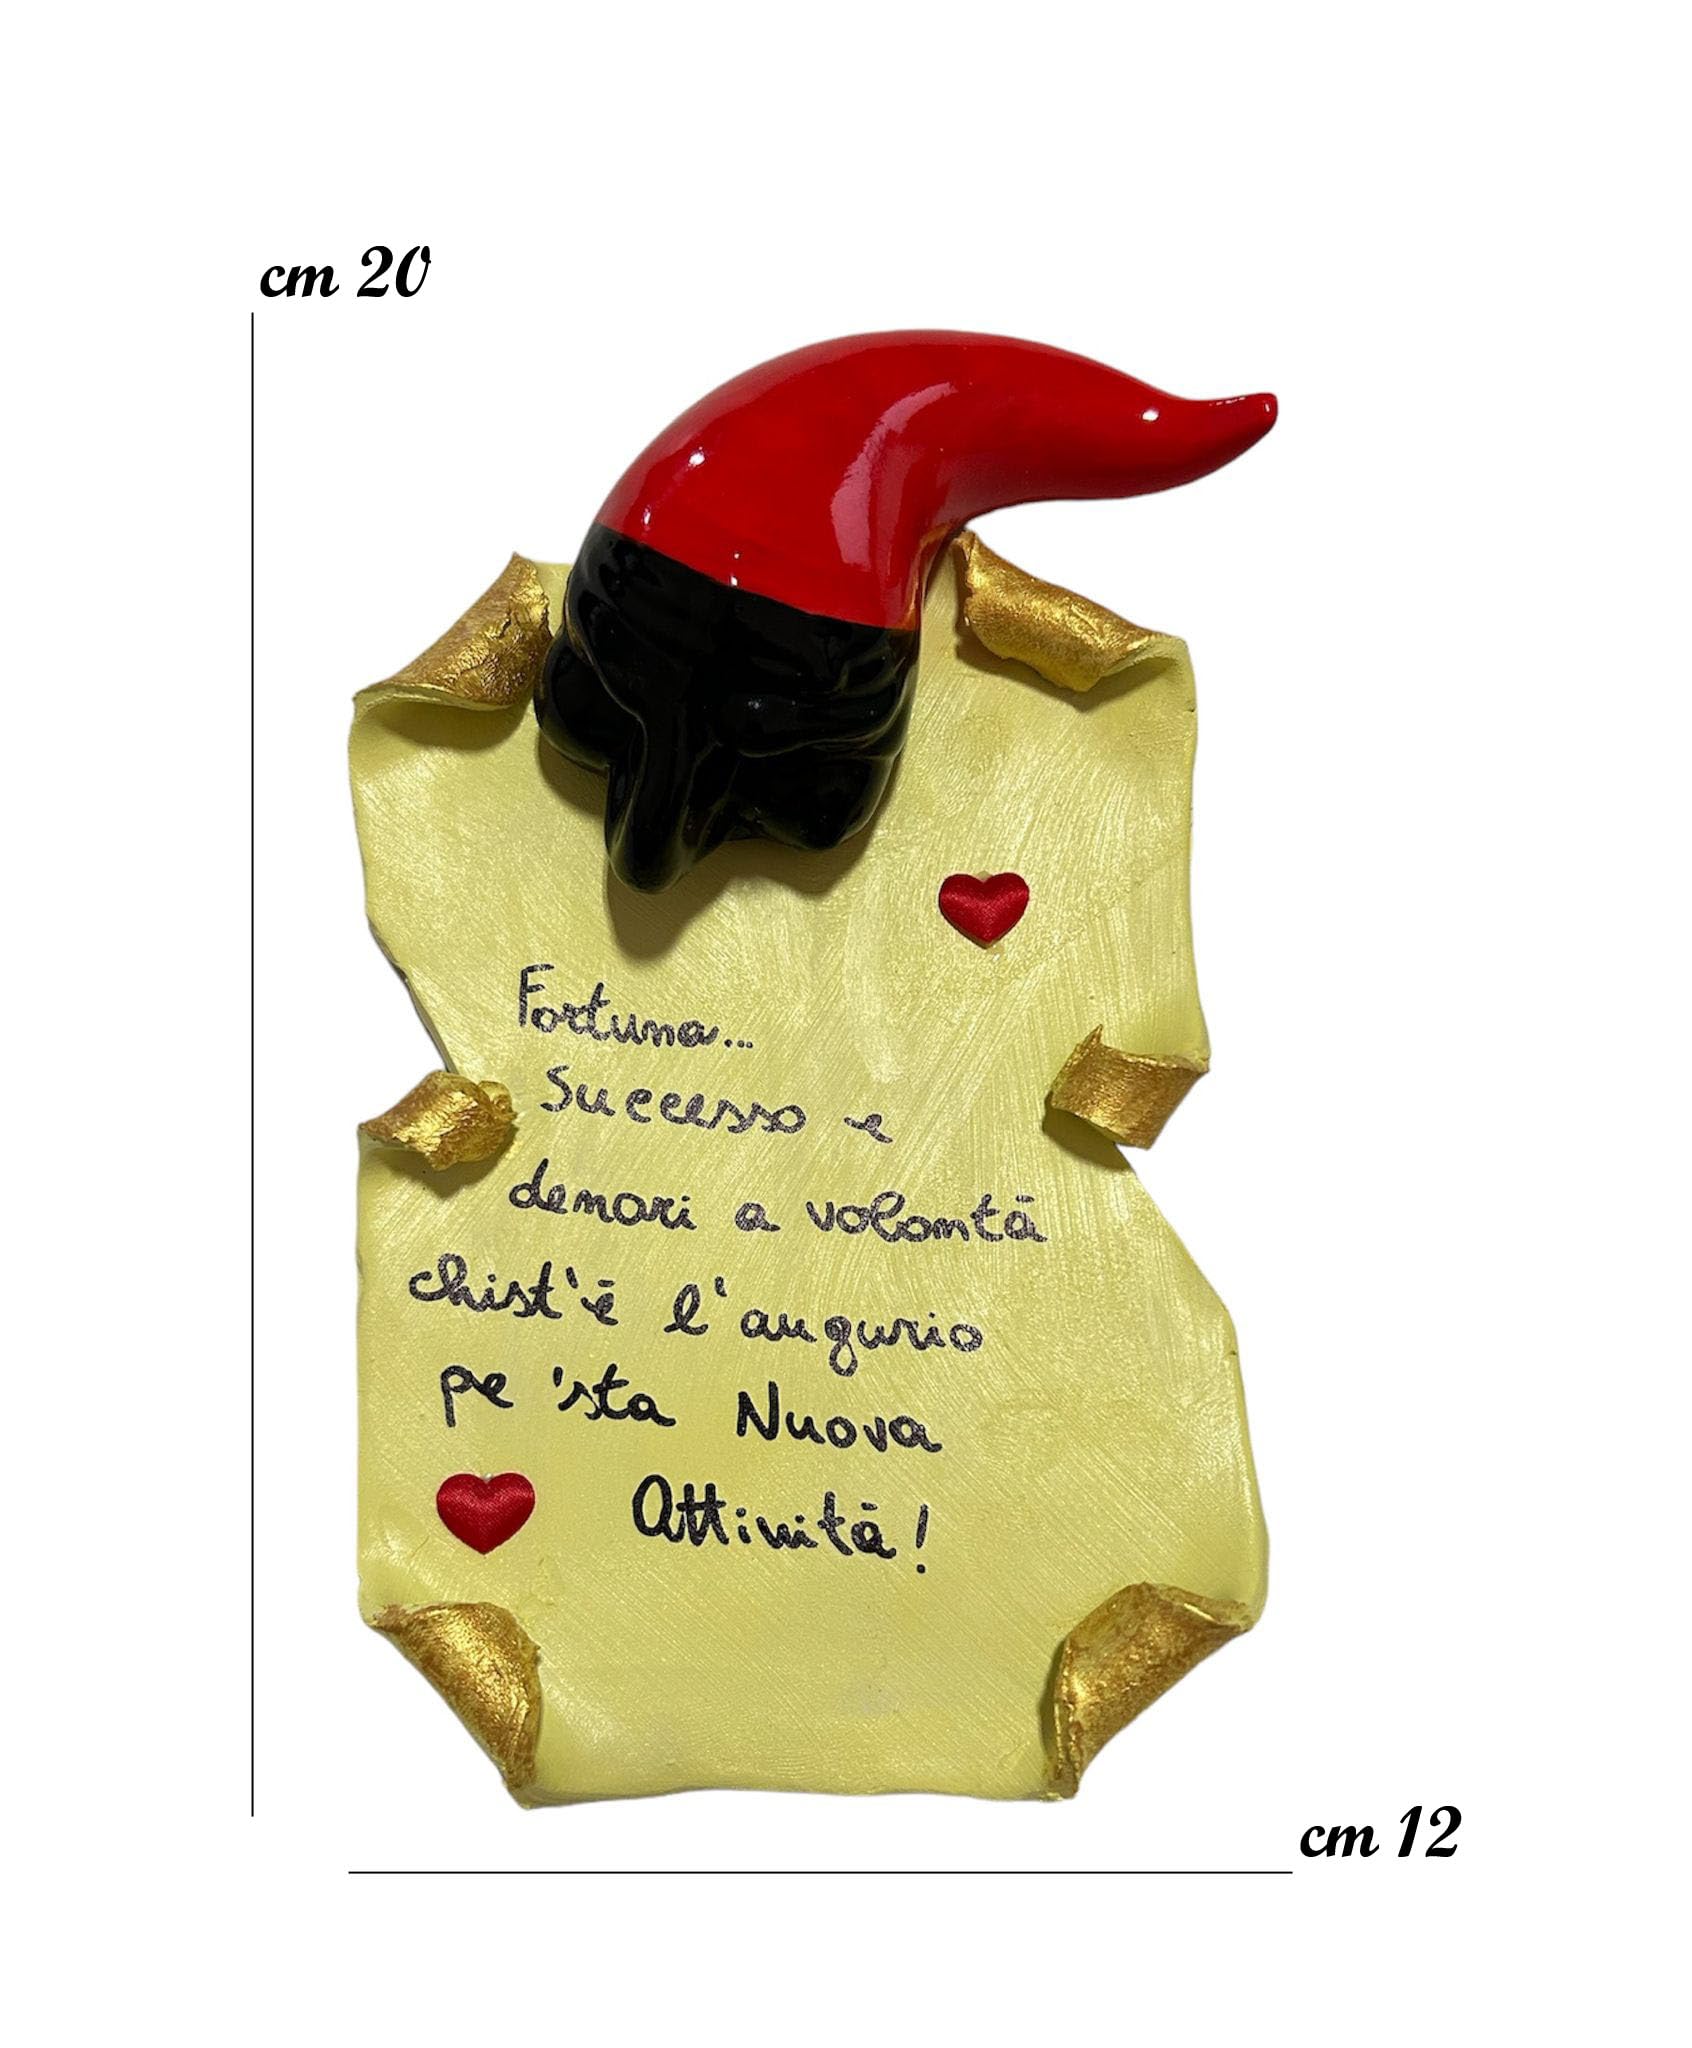 cm 20
Fortuna...
Successo e
denari a volontà
chist'è l'augurio
pe 'sta Nuova
Attività!
cm 12